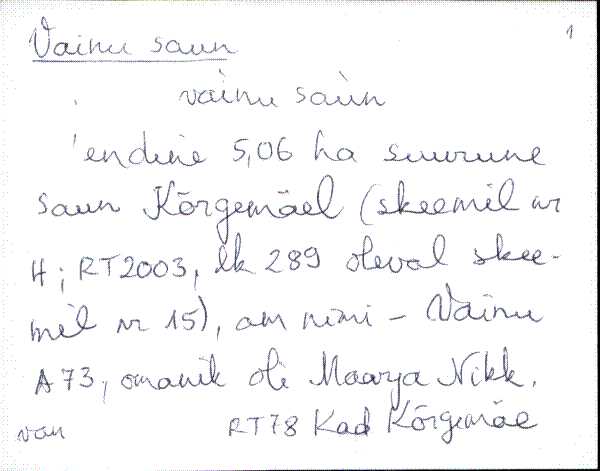 1
Vainu saun
vainu saùn
'endine 5,06 ha suurune
saun Kõrgemäel (skeemil nr
H; RT2003, lk 289 oleval skee-
mil nr 15), am nimi - Vainu
A73, omanik oli Maarja Nikk.
van RT78 Kad Kõrgemäe